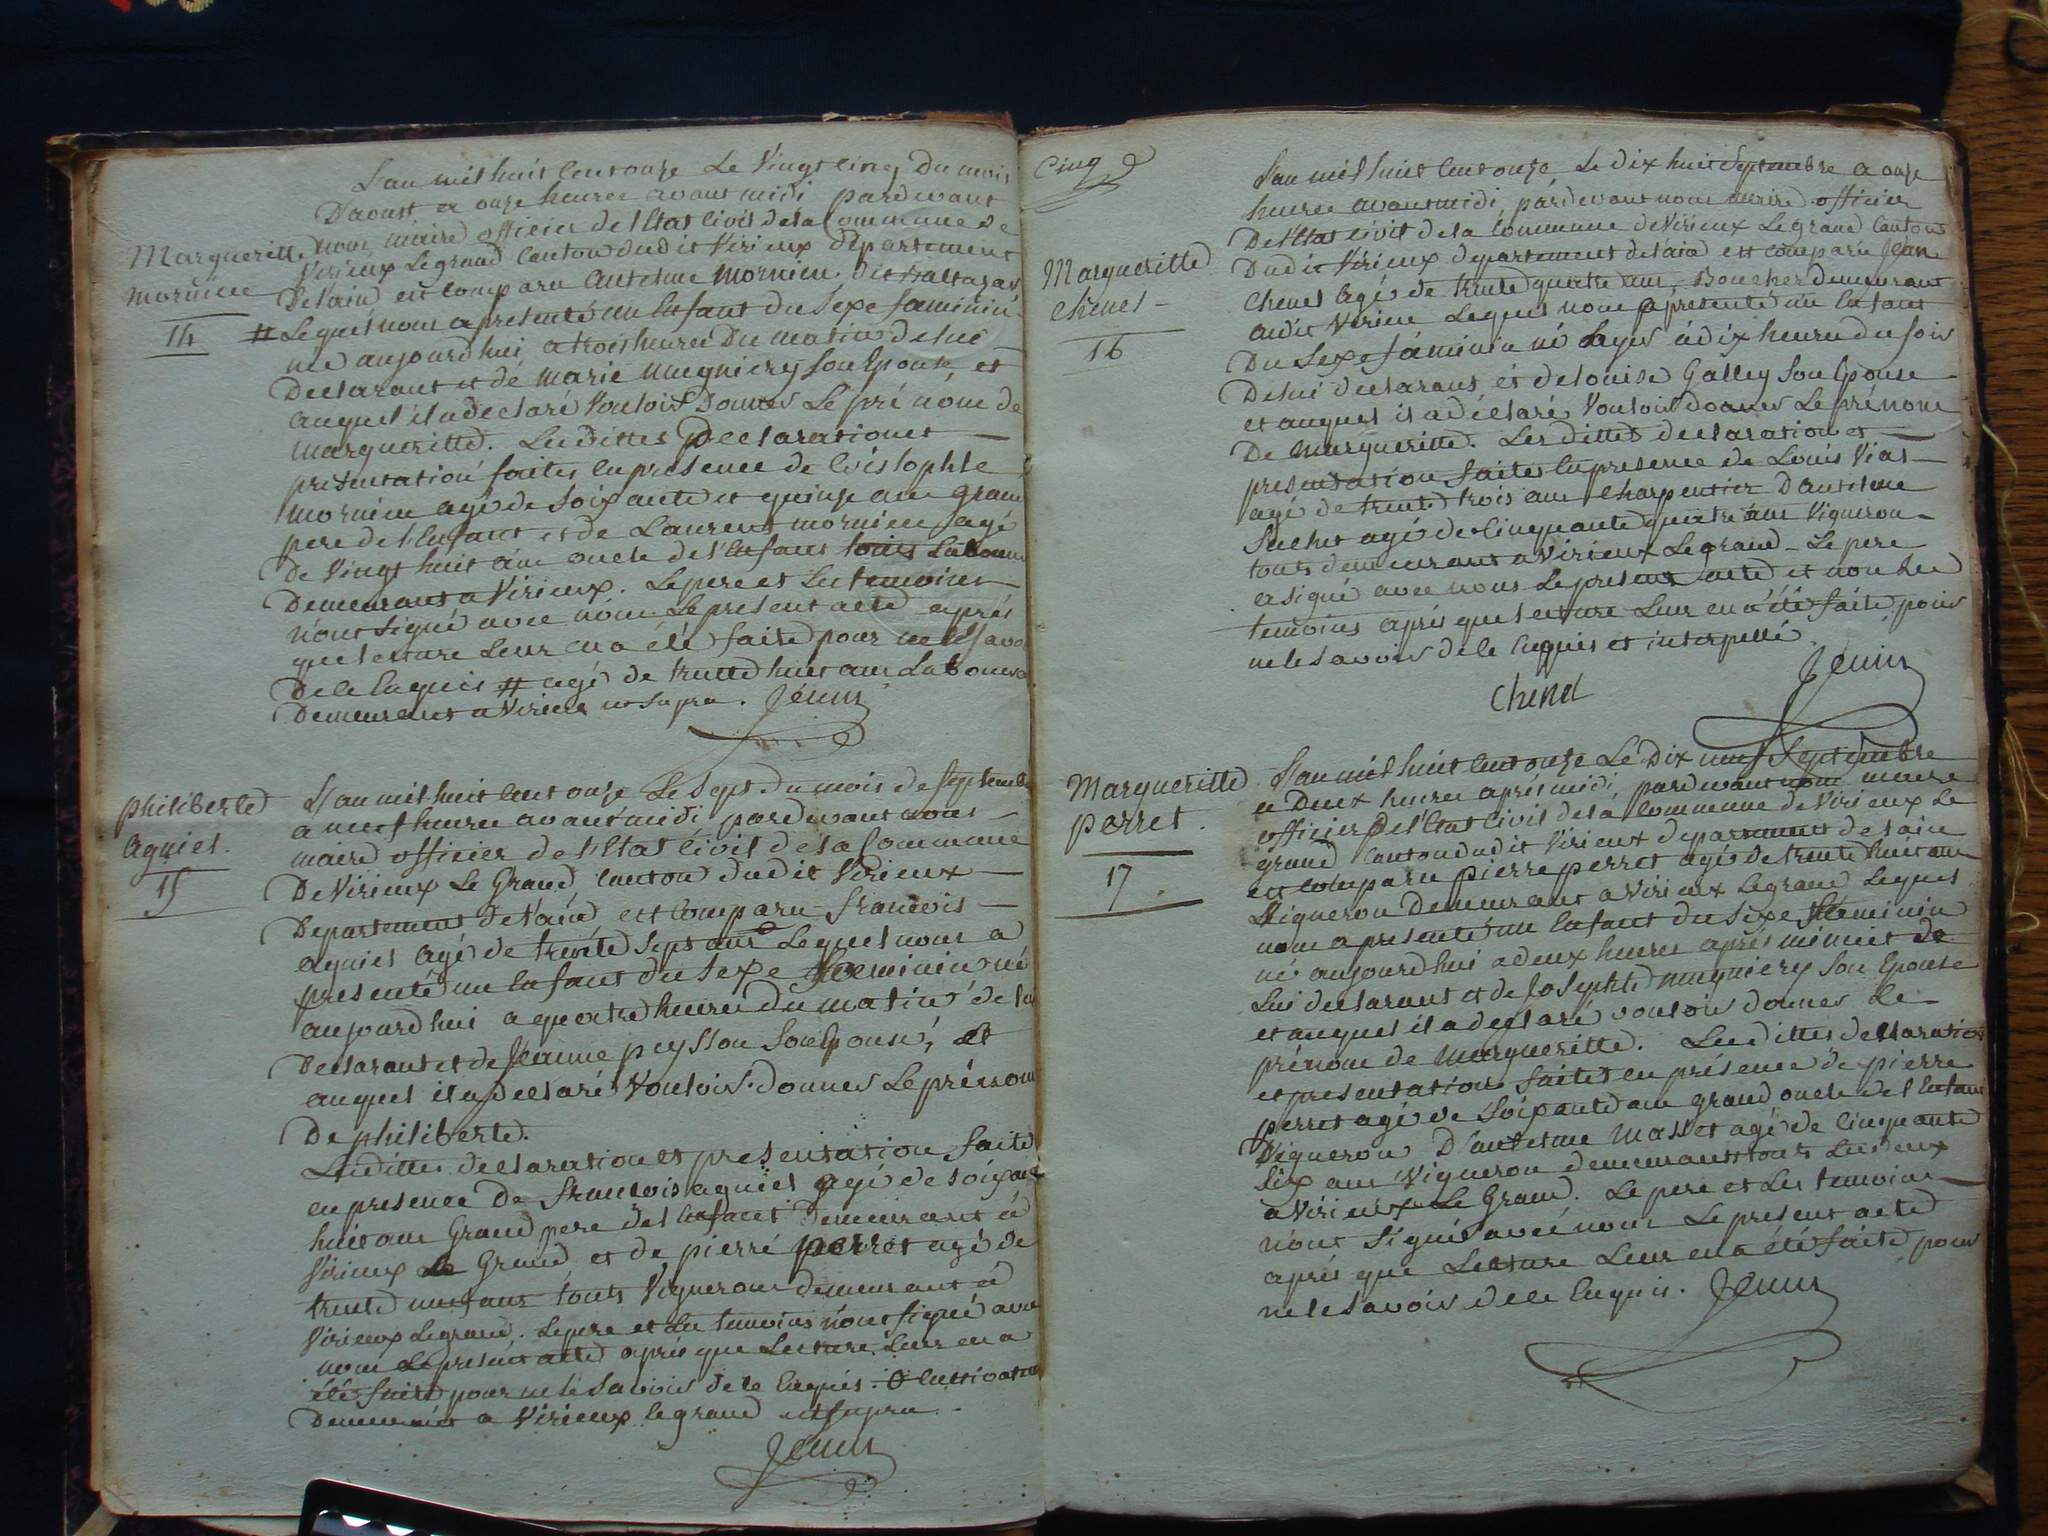 L'an mil huit cent onze Le Vingt cinq Du mois
D'aoust a onze heures avant midi pardevant
nous maire officier de l'Etat civil de la Commune de
Virieux Le grand Canton dudit Virieux département
De l'ain est comparu Antelme Mornieu dit Baltazar
# Lequel nous a presenté un Enfant du Sexe faminin
née aujourd'hui a trois heures Du matin de lui
Declarant et de Marie Mugniery son Epouse, et
auquel il a declaré Vouloir Donner Le pré nom de
Margueritte. Les dittes Declaration et
presentation faites en presence de Cristophle
Mornieu agé de soixante et quinze ans grand
pere de l'Enfant et de Laurent mornieu agé
De Vingt huit ans oncle de l'Enfant tous
Demeurant a Virieux. Le pere et Les temoins
n'ont signé avec nous Le present acte après
que lecture Leur en a été faite pour ne le Savoir
De ce Enquis # agé de trente huit ans Laboureur
Demeurant a Virieu ut supra. Jenin
Margueritte
Mornieu
14
Philiberte
Aguiel.
15
L'an mil huit cent onze Le sept du mois de septembre
a neuf heures avant midi pardevant nous
maire officier de l'Etat Civil de la Commune
De Virieux Le Grand, Canton dudit Virieux
Departement de l'ain est comparu francois
aguiel Agé de trente sept ans Lequel nous a
presenté un Enfant du Sexe faeminin né
aujourd'hui a quatre heures Du matin de lui
Declarant et de Jeanne peysson son Epouse, et
auquel il a declaré Vouloir donner Le prénom
De philiberte.
Les dittes declaration et presentation faite
en presence De francois aguiel agé de soixante
huit ans Grand pere de l'Enfant Demeurant à
Virieux Le Grand et de pierre perret agé de
trente neuf ans touts Vignerons demeurant à
Virieux Le grand. Le pere et Les temoins n'ont signé avec
nous Le present acte après que Lecture Leur en a
été faite pour ne le Savoir de ce Enquis. O cultivateur
Demeurant a Virieux le grand ut supra.
Jenin
Cinq
L'an mil huit cent onze Le dix huit Septembre a onze
heures avant midi, pardevant nous maire officier
De l'Etat civil de la Commune de Virieux Le grand Canton
Dudit Virieux departement de l'ain est comparu Jean
Chenel Agé de trente quatre ans, Boucher demeurant
audit Virieu Lequel nous a presenté un Enfant
Du Sexe féminin né à dix heures du soir
De lui declarant et de Louise Galley son Epouse
et auquel il a déclaré Vouloir donner Le prénom
De Margueritte. Les dittes declaration et
presentation faites en presence de Louis Vial
agé de trente trois ans Charpentier D'antelme
Suchet agé de cinquante quatre ans Vigneron
touts demeurant a Virieux Le grand. Le pere
a signé avec nous Le present acte et non Les
temoins après que lecture Leur en a été faite, pour
ne le savoir de ce Enquis et interpellé.
Jenin
Chenel
Margueritte
Chenel
16
Margueritte
perret.
17
L'an mil huit cent onze Le Dix neuf Septembre
a Deux heures après midi, pardevant nous maire
officier De l'Etat Civil de la Commune de Virieux Le
grand Canton dudit Virieux departement de l'ain
est comparu pierre perret agé de trente huit ans
Vigneron Demeurant a Virieux Le grand Lequel
nous a presenté un Enfant du Sexe faeminin
né aujourd'hui a deux heures après minuit de
Lui declarant et de Josephte mugniery Son Epouse
et auquel il a declaré vouloir donner Le
prénom de Margueritte. Les dittes declaration
et presentation faites en présence de pierre
perret agé de Soixante ans grand oncle de l'Enfant
Vigneron D'antelme Masset agé de cinquante
six ans Vigneron demeurant touts Les deux
a Virieux Le Grand. Le pere et Les temoins
n'ont Signé avec nous Le present acte
après que Lecture Leur en a été faite pour
ne le savoir de ce Enquis. Jenin